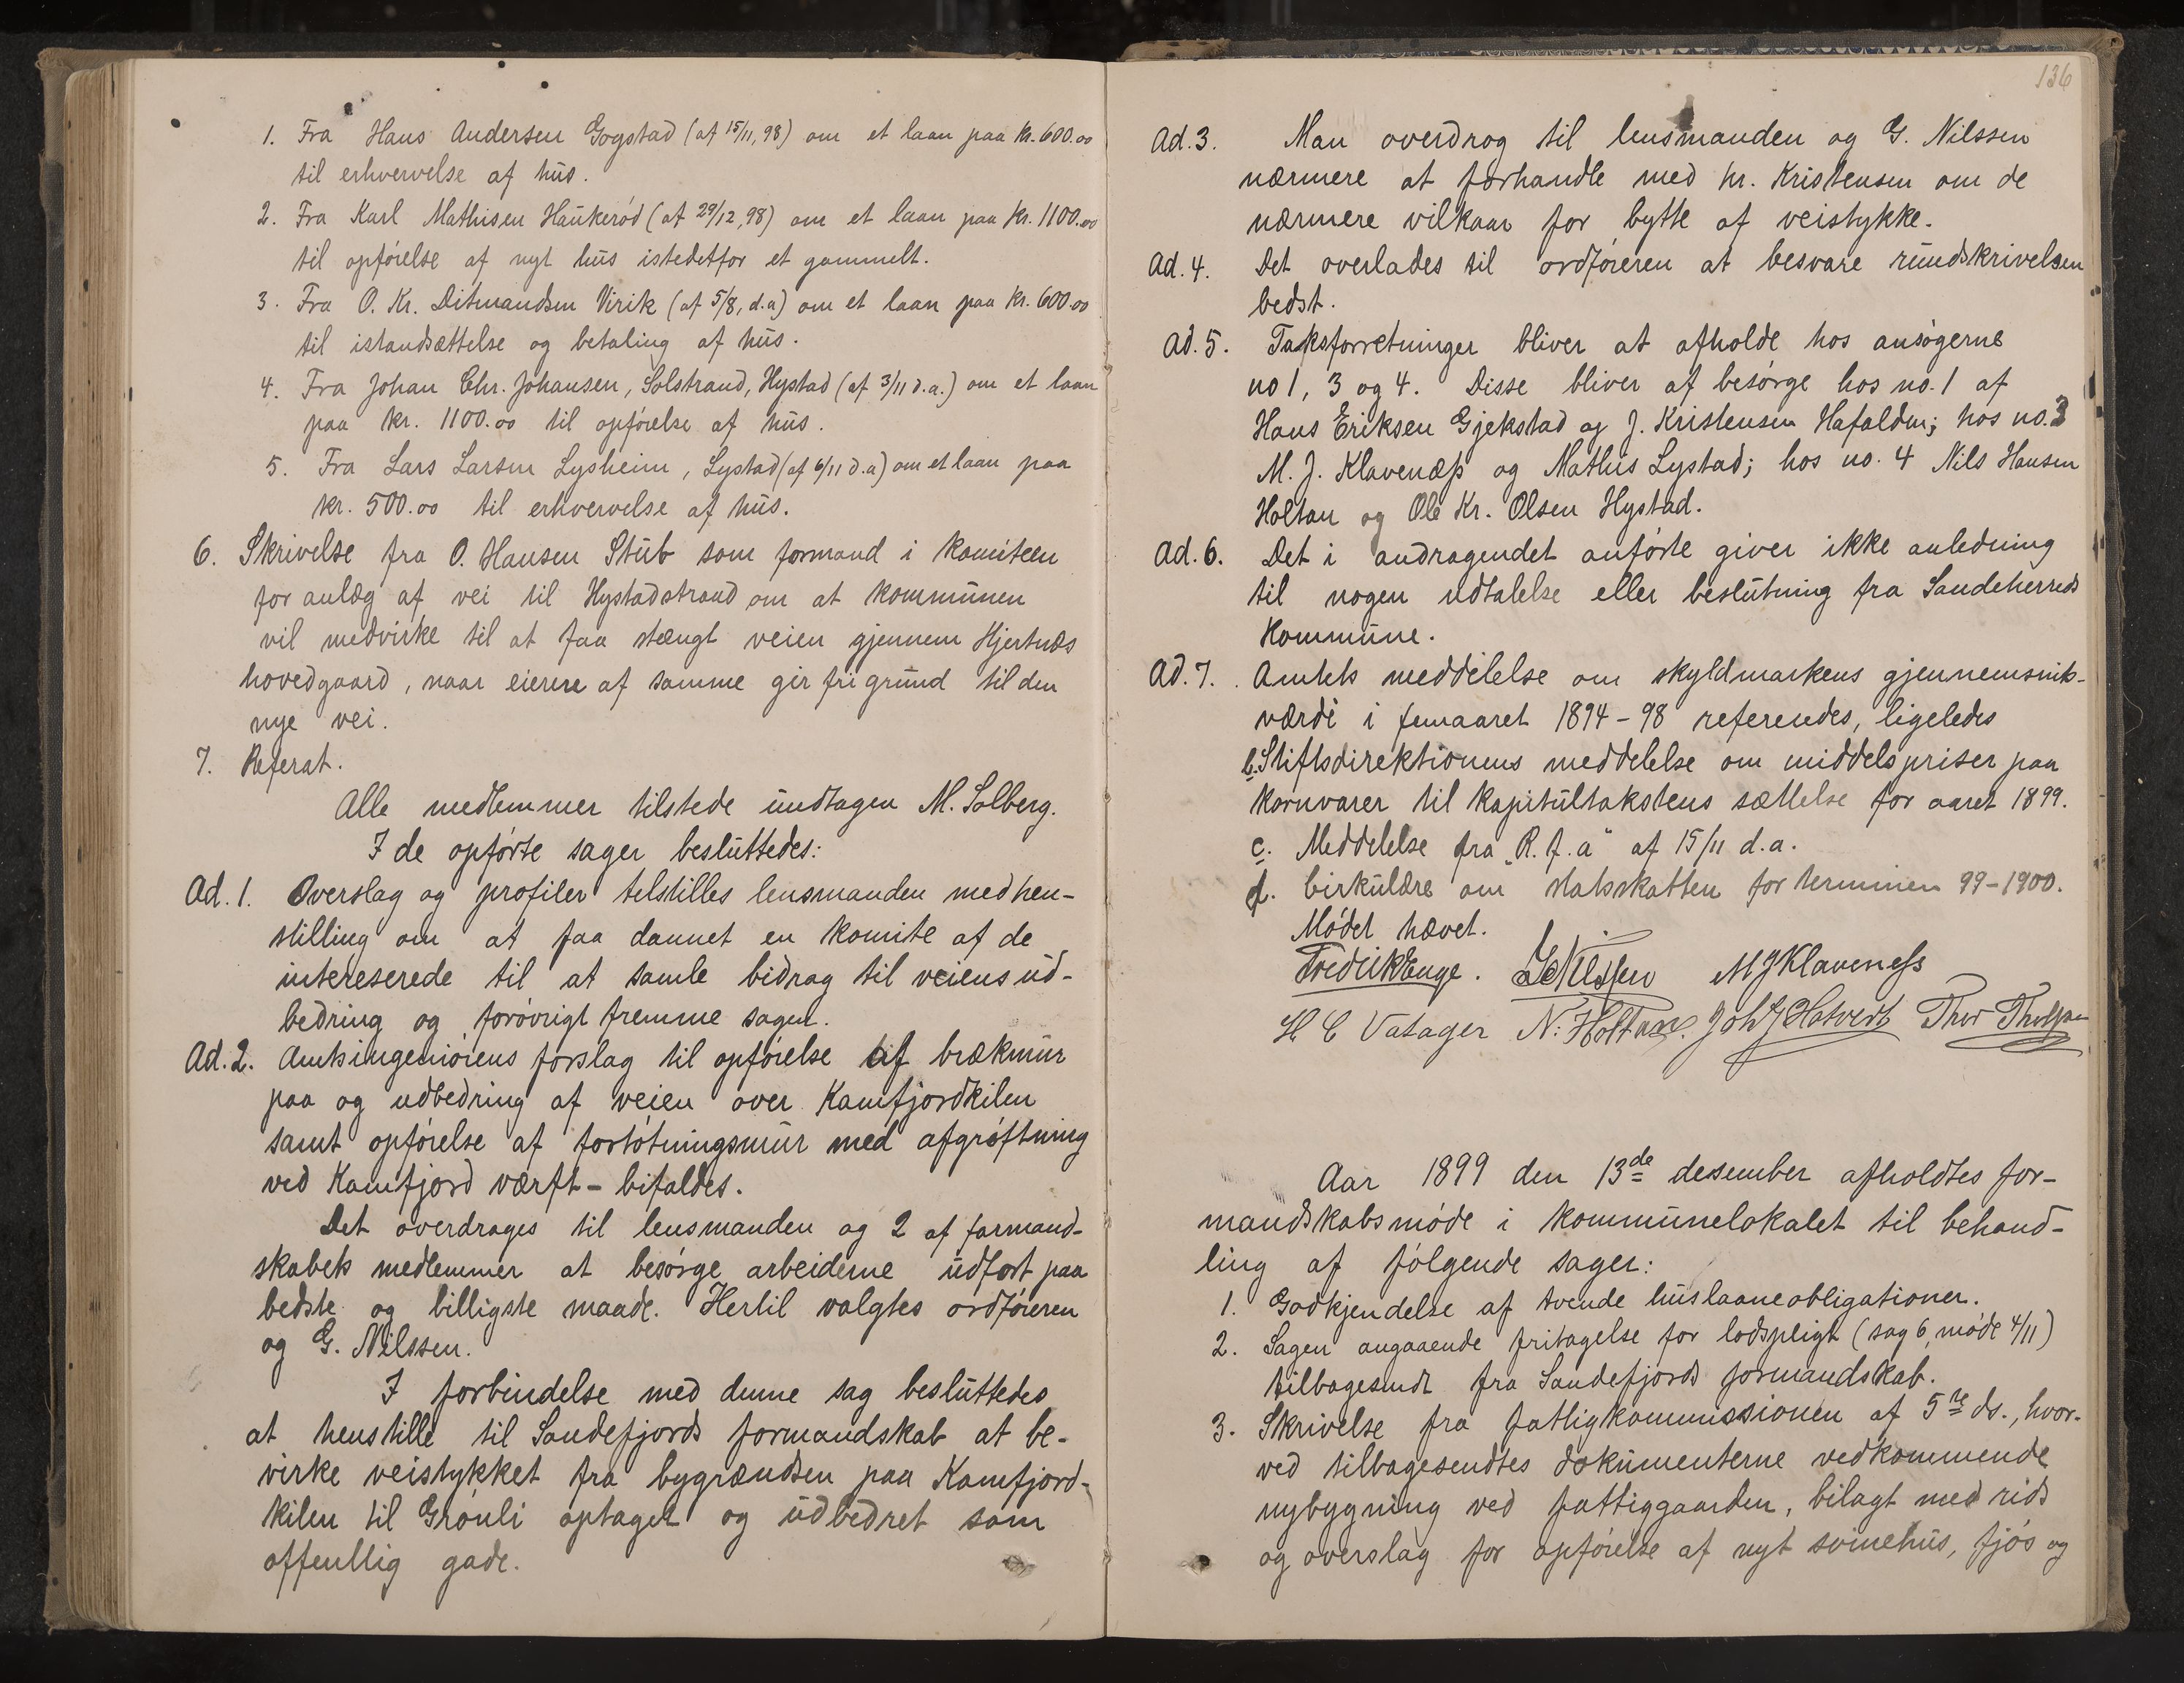 1. Fra Hans Andersen Gogstad (af 15/11, 98) om et laan paa kr. 600.00
til erhvervelse af hus.
2. Fra Karl Mathisen Haukerød (af 29/12, 98) om et laan paa kr. 1100.00
til opførelse af nyt hus istedetfor et gammelt.
3. Fra O. Kr. Ditmandsen Virik (af 5/8, d.a) om et laan paa kr. 600.00
til istandsættelse og betaling af hus.
4. Fra Johan Chr. Johansen, Solstrand, Hystad (af 3/11 d.a.) om et laan
paa kr. 1100.00 til opførelse af hus.
5. Fra Lars Larsen Lysheim, Lystad (af 6/11 d.a) om et laan paa
kr. 500.00 til erhvervelse af hus.
6. Skrivelse fra O. Hansen Stub som formand i komiteen
for anlæg af vei til Hystadstrand om at kommunen
vil medvirke til at faa stængt veien gjennem Hjertnæs
hovedgaard, naar eierere af samme gir fri grund til den
nye vei.
7. Referat.
Alle medlemmer tilstede undtagen M. Solberg.
I de opførte sager besluttedes:
Ad. 1. Overslag og profiler telstilles lensmanden med hen-
stilling om at faa dannet en komite af de
intereserede til at samle bidrag til veiens ud-
bedring og forøvrigt fremme sagen.
Ad. 2. Amtsingeniørens forslag til opførelse af brækmur
paa og udbedring af veien over Kamfjordkilen
samt opførelse af forstøtningsmur med afgrøftning
ved Kamfjord værft - bifaldes.
Det overdrages til lensmanden og 2 af formand-
skabets medlemmer at besørge arbeiderne udført paa
bedste og billigste maade. Hertil valgtes ordføreren
og G. Nilssen.
I forbindelse med denne sag besluttedes
at henstille til Sandefjords formandskab at be-
virke veistykket fra bygrændsen paa Kamfjord-
kilen til Grønli optaget og udbedret som
offentlig gade.
136
Ad. 3. Man overdrog til lensmanden og G. Nilssen
nærmere at forhandle med hr. Kristensen om de
nærmere vilkaar for bytte af veistykke.
Ad. 4. Det overlades til ordføreren at besvare rundskrivelsen
bedst.
Ad. 5. Taksforretninger bliver at afholde hos ansøgerne
no 1, 3 og 4. Disse bliver af besørge hos no. 1 af
Hans Eriksen Gjekstad og J. Kristensen Hafalden; hos no. 3
M. J. Klavenæss og Mathis Lystad; hos no. 4 Nils Hansen
Holtan og Ole Kr. Olsen Hystad.
Ad. 6. Det i andragendet anførte giver ikke anledning
til nogen udtalelse eller beslutning fra Sandeherreds
kommune.
Ad. 7. Amtets meddelelse om skyldmarkens gjennemsnits-
værdi i femaaret 1894-98 referendes, ligeledes
b. Stiftsdirektionens meddelelse om middelspriser paa
kornvarer til kapitultakstens sættelse for aaret 1899.
c. Meddelelse fra "R. f. a" af 15/11 d.a.
d. Cirkulære om statsskatten for terminen 99-1900.
Mødet hævet.
Fredrik Enge. G Nilssen M J Klaveness
H C Vatager N. Holtan. Joh J Hotvedt Thor
Aar 1899 den 13de desember afholdtes for-
mandskabsmøde i kommunelokalet til behand-
ling af følgende sager:
1. Godkjendelse af tvende huslaaneobligationer.
2. Sagen angaaende fritagelse for lodspligt (sag 6, møde 4/11)
tilbagesendt fra Sandefjords formandskab.
3. Skrivelse fra fattigkommissionen af 5te ds., hvor-
ved tilbagesendtes dokumenterne vedkommende
nybygning ved fattiggaarden, bilagt med rids
og overslag for opførelse af nyt svinehus, fjøs og